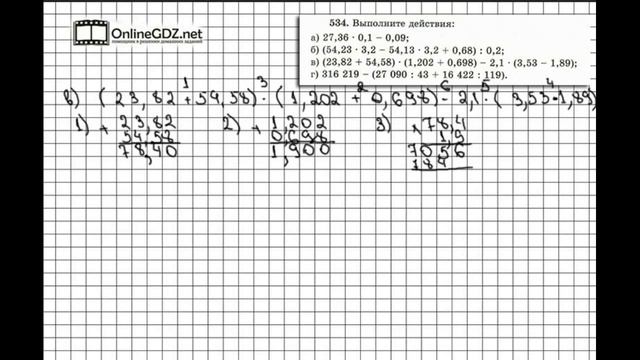 OnlineGDZ.net
помощник в решении домашних заданий
534. Выполните действия:
а) 27,36 · 0,1 − 0,09;
б) (54,23 · 3,2 − 54,13 · 3,2 + 0,68) : 0,2;
в) (23,82 + 54,58) · (1,202 + 0,698) − 2,1 · (3,53 − 1,89);
г) 316 219 − (27 090 : 43 + 16 422 : 119).
1 3 2 6 5 4
в) (23,82 + 54,58) · (1,202 + 0,698) − 2,1 · (3,53 - 1,89)
1) + 23,82 2) + 1,202 3) × 78,4
54,58 0,698 1,9
78,40 1,900 7056
184